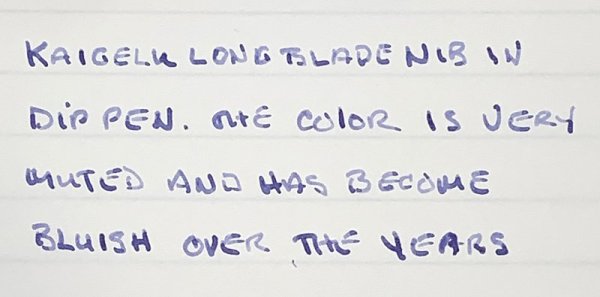 KAIGELU LONG BLADE NIB IN
DIP PEN. THE COLOR IS VERY
MUTED AND HAS BECOME
BLUISH OVER THE YEARS